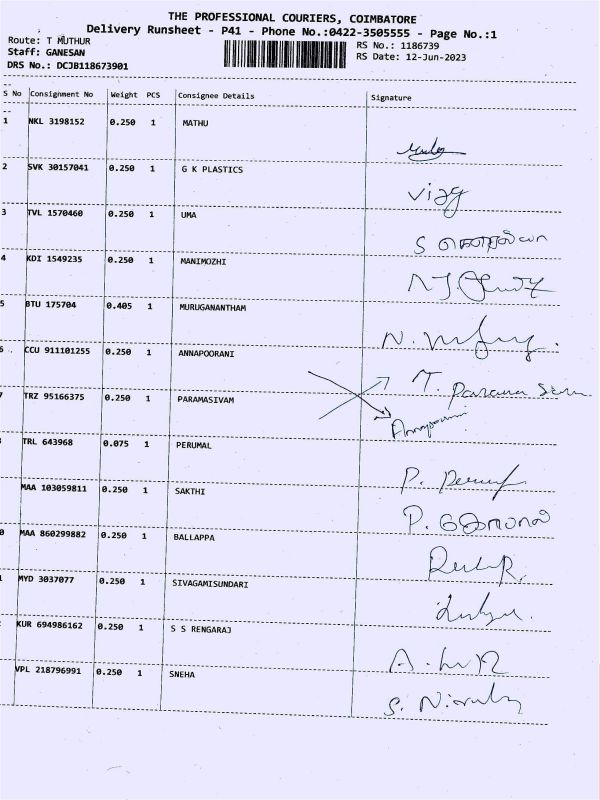 THE PROFESSIONAL COURIERS, COIMBATORE
Delivery Runsheet - P41 - Phone No.:0422-3505555 - Page No.:1
Route: T MUTHUR
RS No.: 1186739
Staff: GANESAN
RS Date: 12-Jun-2023
DRS No.: DCJB118673901
S No Consignment No Weight PCS Consignee Details Signature
1 NKL 3198152 0.250 1 MATHU
2 SVK 30157041 0.250 1 G K PLASTICS
Vijay
3 TVL 1570460 0.250 1 UMA
S
4 KDI 1549235 0.250 1 MANIMOZHI
5 BTU 175704 0.405 1 MURUGANANTHAM
N.
6 CCU 911101255 0.250 1 ANNAPOORANI
T. Parama
7 TRZ 95166375 0.250 1 PARAMASIVAM
Annapoorani
TRL 643968 0.075 1 PERUMAL
P.
MAA 103059811 0.250 1 SAKTHI
P.
0 MAA 860299882 0.250 1 BALLAPPA
1 MYD 3037077 0.250 1 SIVAGAMISUNDARI
KUR 694986162 0.250 1 S S RENGARAJ
A.
VPL 218796991 0.250 1 SNEHA
S.